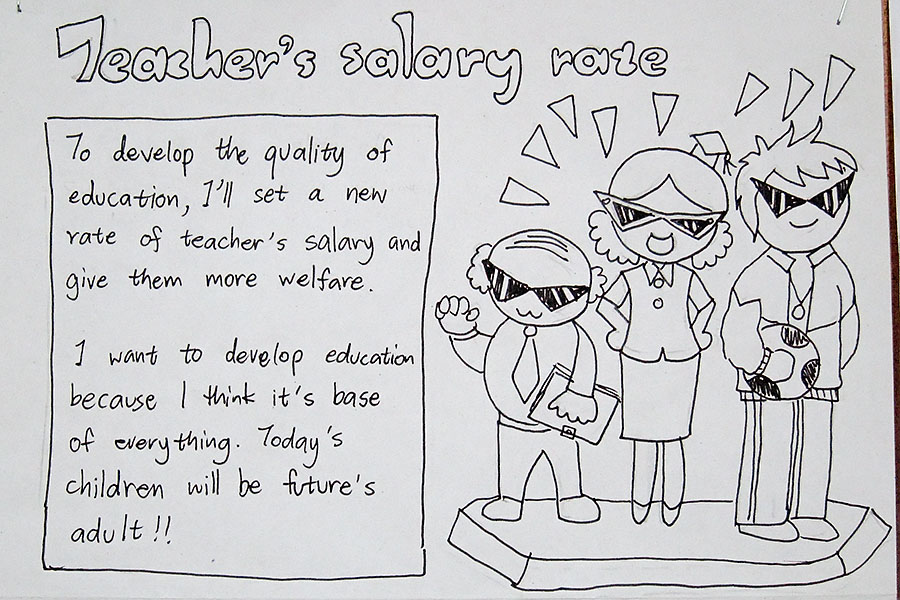 Teacher's salary rate
To develop the quality of
education, I'll set a new
rate of teacher's salary and
give them more welfare.
I want to develop education
because I think it's base
of everything. Today's
children will be future's
adult!!